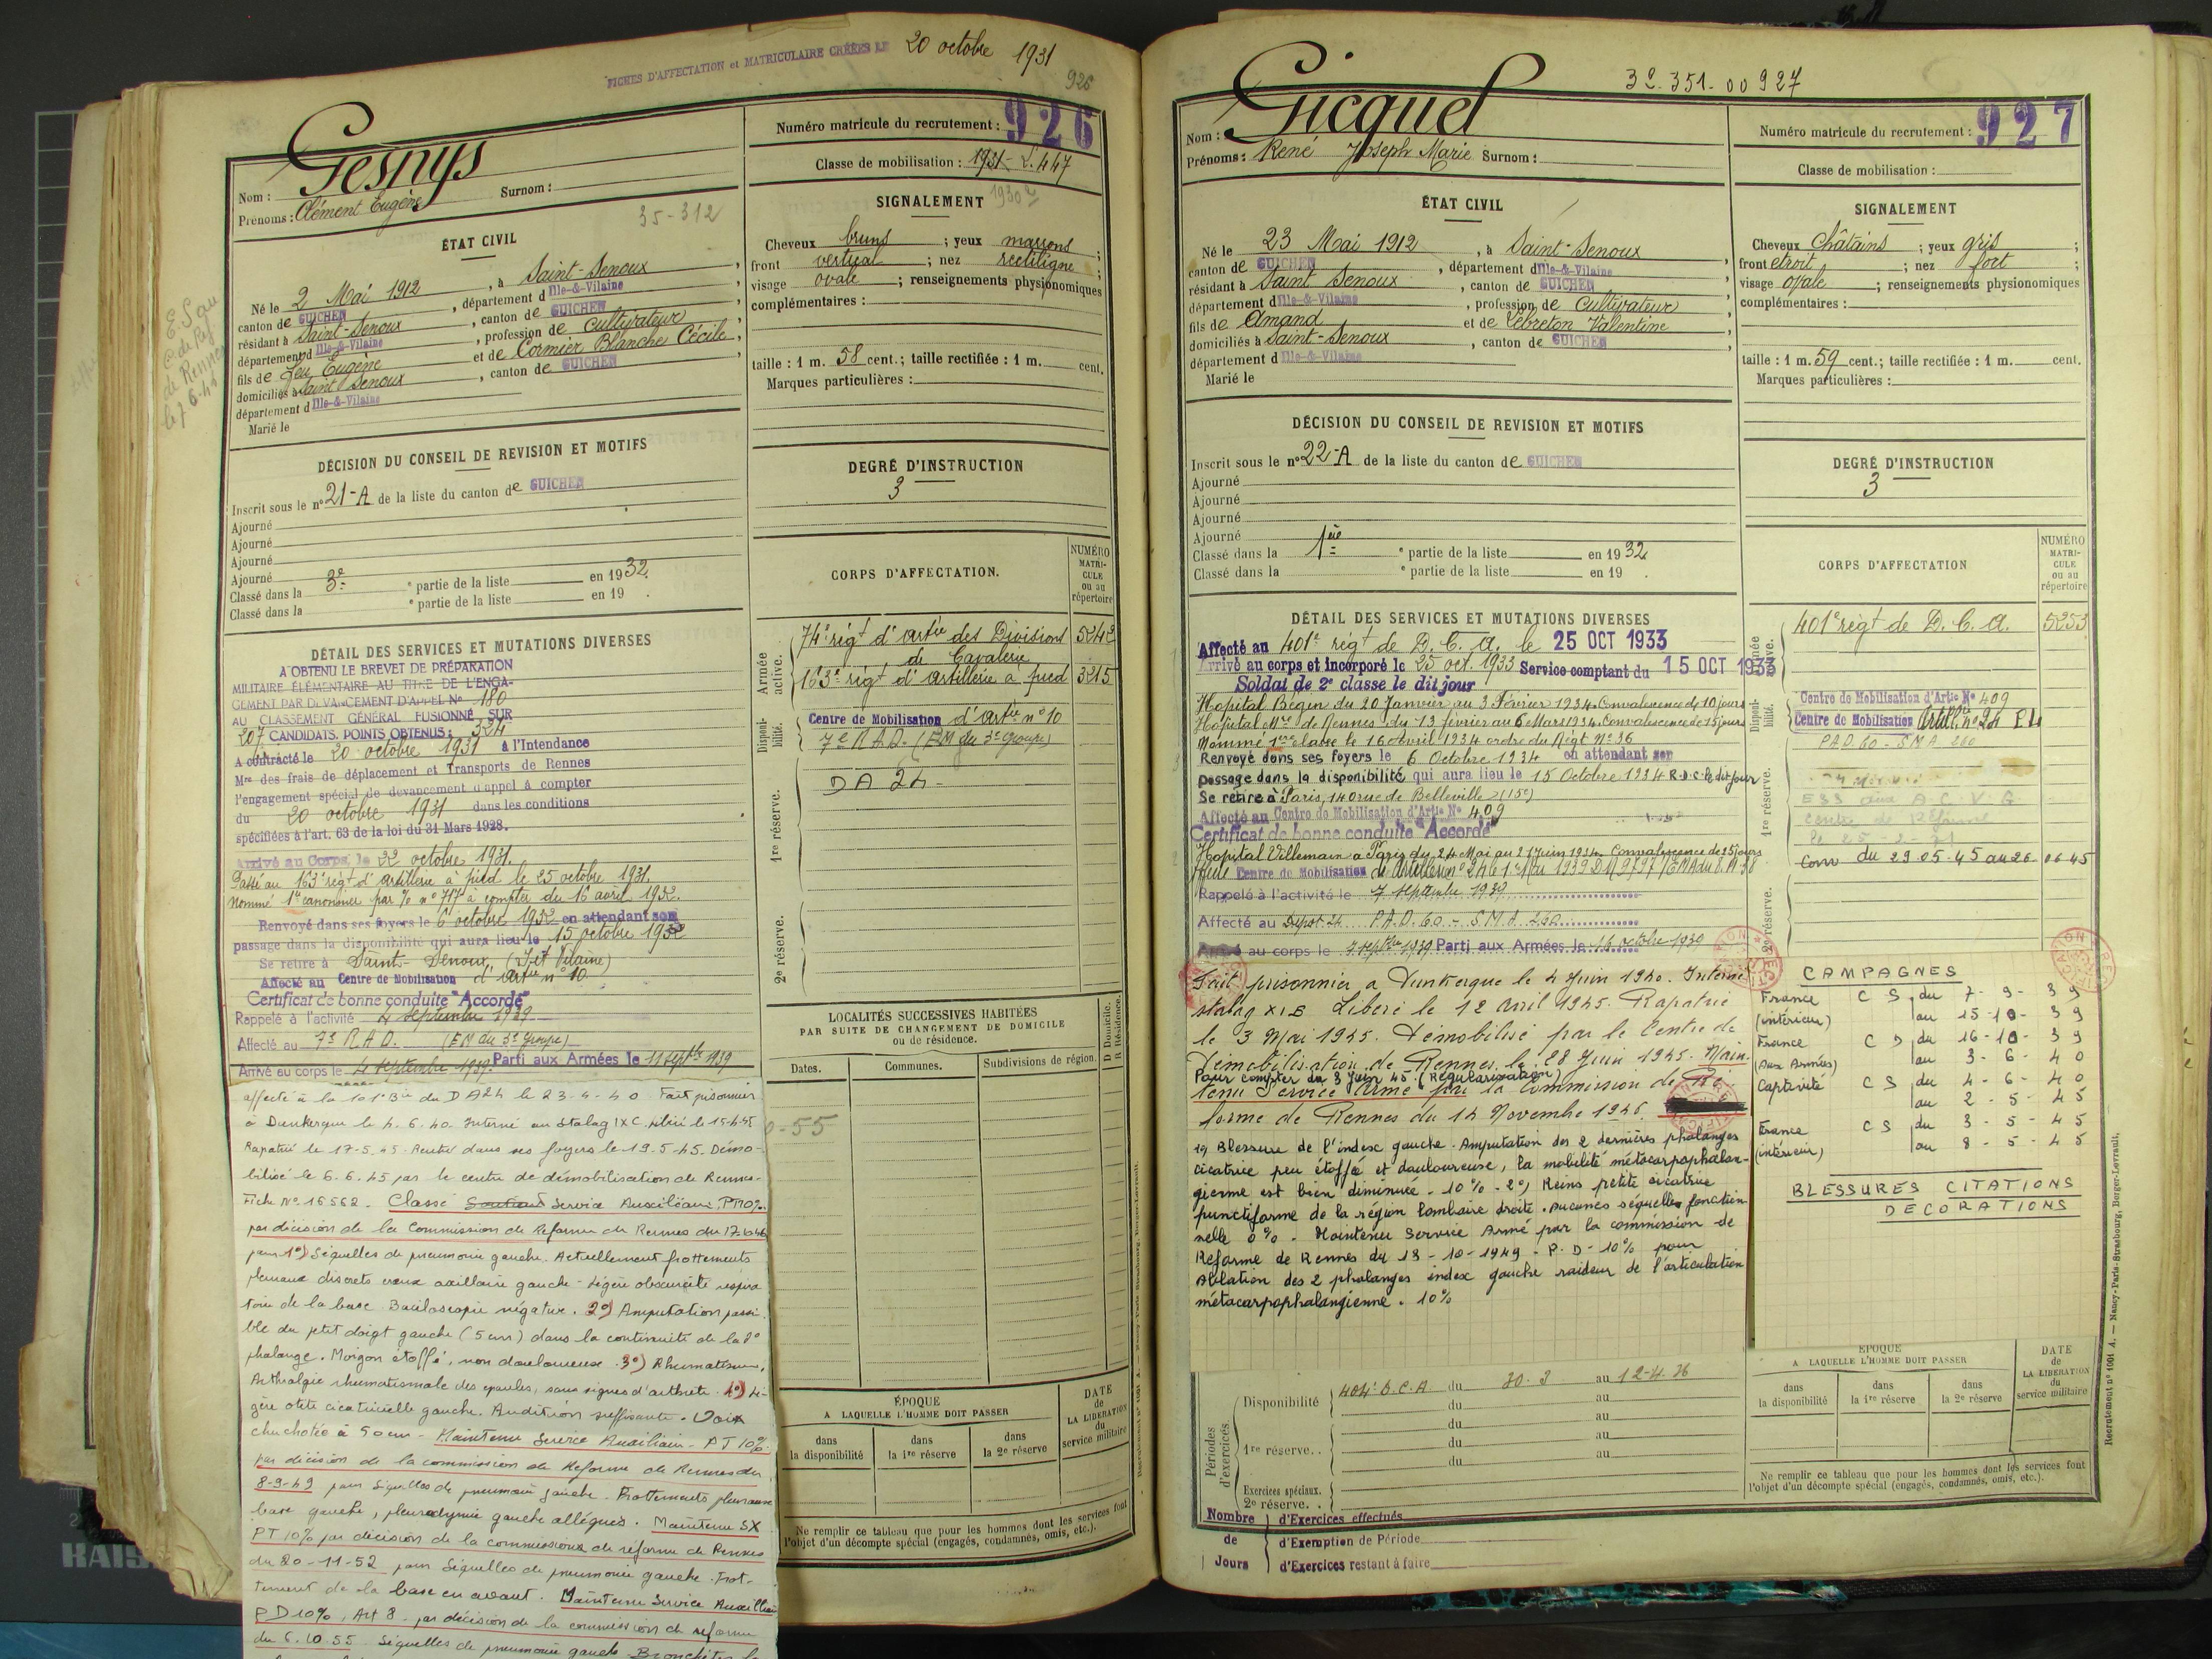 FICHES D'AFFECTATION et MATRICULAIRE CRÉÉES LE 20 octobre 1931
926
Nom : Gesnys
Prénoms : Clément Eugène Surnom :
35-312
ÉTAT CIVIL
Né le 2 Mai 1912, à Saint-Senoux,
canton de GUICHEN, département d Ille-&-Vilaine
résidant à Saint-Senoux, canton de GUICHEN
département d Ille-&-Vilaine, profession de Cultivateur
fils de feu Eugène et de Cormier Blanche Cécile,
domiciliés à Saint Senoux, canton de GUICHEN
département d Ille-&-Vilaine
Marié le
DÉCISION DU CONSEIL DE REVISION ET MOTIFS
Inscrit sous le n° 21-A de la liste du canton de GUICHEN
Ajourné
Ajourné
Ajourné
Ajourné
Classé dans la 3e ° partie de la liste en 1932.
Classé dans la ° partie de la liste en 19 .
DÉTAIL DES SERVICES ET MUTATIONS DIVERSES
A OBTENU LE BREVET DE PRÉPARATION
MILITAIRE ÉLÉMENTAIRE AU TITRE DE L'ENGA-
GEMENT PAR DEVANCEMENT D'APPEL N° 180
AU CLASSEMENT GÉNÉRAL FUSIONNÉ SUR
207 CANDIDATS. POINTS OBTENUS : 324
A contracté le 20 octobre 1931 à l'Intendance
Mre des frais de déplacement et Transports de Rennes
l'engagement spécial de devancement d'appel à compter
du 20 octobre 1931 dans les conditions
spécifiées à l'art. 63 de la loi du 31 Mars 1928.
Arrivé au Corps le 22 octobre 1931.
Passé au 163e régt d'artillerie à pied le 25 octobre 1931.
Nommé 1er canonnier par % n° 717 à compter du 16 avril 1932.
Renvoyé dans ses foyers le 6 octobre 1932 en attendant son
passage dans la disponibilité qui aura lieu le 15 octobre 1932
Se retire à Saint-Senoux, (I et Vilaine)
Affecté au Centre de Mobilisation d'artie n° 10
Certificat de bonne conduite "Accordé"
Rappelé à l'activité 4 septembre 1939
Affecté au 7e R.A.D. (EM du 3e groupe)
Arrivé au corps le 4 septembre 1939. Parti aux Armées le 11 septbre 1939
affecté à la 101e Bie du D A24 le 23-4-40 Fait prisonnier
à Dunkerque le 4.6.40. Interné au Stalag IX C. libéré le 15-4-45
Rapatrié le 17-5.45. Rentré dans ses foyers le 19.5.45. Démo-
bilisé le 6.6.45 par le centre de démobilisation de Rennes-
Fiche N° 16562. Classé Service Auxiliaire, PT10%.
par décision de la Commission de Réforme de Rennes du 17-6-46
pour 1°) Séquelles de pneumonie gauche. Actuellement frottements
pleuraux discrets creux axillaire gauche - Légère obscurité respira
toire de la base. Bacilloscopie négative. 2°) Amputation possi-
ble du petit doigt gauche (5 cm) dans la continuité de la 1e
phalange. Moignon étoffé, non douloureuse. 3°) Rhumatisme,
Arthralgie rhumatismale des épaules, sans signes d'arthrite. 4°) Lé-
gère otite cicatricielle gauche. Audition suffisante. Voix
chuchotée à 50 cm - Maintenu Service Auxiliaire - PT 10%.
par décision de la commission de Réforme de Rennes du
8-9-49 pour séquelles de pneumonie gauche. Frottements pleuraux
base gauche, pleurodynie gauche alléguée. Maintenu SX
PT 10% par décision de la commission de réforme de Rennes
du 20-11-52 pour séquelles de pneumonie gauche. Frot-
tement de la base en avant. Maintenu Service Auxiliaire
PD 10%, Art 8. par décision de la commission de réforme
du 6.10.55 Séquelles de pneumonie gauche. Bronchites
E.S au
C. de Ref.
de Rennes
le 7.6.41
Numéro matricule du recrutement : 926
Classe de mobilisation : 1931- L.447
1930
SIGNALEMENT
Cheveux bruns ; yeux marrons ;
front vertical ; nez rectiligne ;
visage ovale ; renseignements physionomiques
complémentaires :
taille : 1 m. 58 cent.; taille rectifiée : 1 m. cent.
Marques particulières :
DEGRÉ D'INSTRUCTION
3
CORPS D'AFFECTATION.
NUMÉRO MATRI- CULE ou au répertoire
Armée active.
74e régt d'artie des Divisions de Cavalerie 5242
163e régt d'artillerie à pied 3215
Disponi- bilité.
Centre de Mobilisation d'artie n° 10
7e R.A.D. (EM du 3e groupe)
1re réserve.
DA 24
2e réserve.
LOCALITÉS SUCCESSIVES HABITÉES
PAR SUITE DE CHANGEMENT DE DOMICILE
ou de résidence.
D Domicile. R Résidence.
Dates. Communes. Subdivisions de région.
0-55
ÉPOQUE
A LAQUELLE L'HOMME DOIT PASSER
DATE de LA LIBÉRATION du service militaire
dans la disponibilité
dans la 1re réserve
dans la 2e réserve
Ne remplir ce tableau que pour les hommes dont les services font
l'objet d'un décompte spécial (engagés, condamnés, omis, etc.).
32.351.00927
Nom : Gicquel
Prénoms : René Joseph Marie Surnom :
ÉTAT CIVIL
Né le 23 Mai 1912, à Saint-Senoux,
canton de GUICHEN, département d Ille-&-Vilaine
résidant à Saint Senoux, canton de GUICHEN
département d Ille-&-Vilaine, profession de Cultivateur
fils de Amand et de Lebreton Valentine,
domiciliés à Saint-Senoux, canton de GUICHEN
département d Ille-&-Vilaine
Marié le
DÉCISION DU CONSEIL DE REVISION ET MOTIFS
Inscrit sous le n° 22-A de la liste du canton de GUICHEN
Ajourné
Ajourné
Ajourné
Ajourné
Classé dans la 1ère ° partie de la liste en 1932
Classé dans la ° partie de la liste en 19 .
DÉTAIL DES SERVICES ET MUTATIONS DIVERSES
Affecté au 401e régt de D. C. A. le 25 OCT 1933
Arrivé au corps et incorporé le 25 oct. 1933 Service comptant du 15 OCT 1933
Soldat de 2e classe le dit jour
Hôpital Bégin du 20 Janvier au 3 Février 1934. Convalescence de 10 jours
Hôpital Mre de Rennes du 13 février au 6 Mars 1934. Convalescence de 15 jours
Nommé 1ère classe le 16 Avril 1934 ordre du Régt N° 36
Renvoyé dans ses foyers le 6 Octobre 1934 en attendant son
passage dans la disponibilité qui aura lieu le 15 Octobre 1934 R.D.C. le dit jour
Se retire à Paris, 140 rue de Belleville
Affecté au Centre de Mobilisation d'Artie N° 409
Certificat de bonne conduite "Accordé"
Hôpital Villemain à Paris du 24 Mai au 21 Juin 1934. Convalescence de 25 jours
Affecté Centre de Mobilisation d'Artillerie n° 24
Rappelé à l'activité le 7 septembre 1939
Affecté au Dépôt 24 P.A.D. 60 - S.M.A. 260
Arrivé au corps le 7 septbre 1939 Parti aux Armées le 16 octobre 1939
Fait prisonnier à Dunkerque le 4 Juin 1940. Interné
stalag XI B Libéré le 12 avril 1945. Rapatrié
le 3 Mai 1945. Démobilisé par le Centre de
Démobilisation de Rennes le 28 Juin 1945. Main-
Pour compter du 3 Juin 45. (Régularisation)
tenu Service Armé par la Commission de Ré-
forme de Rennes du 14 Novembre 1946.
1°) Blessure de l'index gauche. Amputation des 2 dernières phalanges
cicatrice peu étoffée et douloureuse, la mobilité métacarpophalan-
gienne est bien diminuée - 10% - 2°) Reins petite cicatrice
punctiforme de la région lombaire droite. Aucunes séquelles fonction-
nelle 0% - Maintenu Service Armé par la commission de
Réforme de Rennes du 13-10-1949 - P.D - 10% pour
Ablation des 2 phalanges index gauche raideur de l'articulation
métacarpophalangienne. 10%
Périodes d'exercices.
Disponibilité 404e D.C.A du 30.3 au 12-4.36
du au
du au
1re réserve. . du au
du au
Exercices spéciaux.
2e réserve. .
Nombre de Jours
d'Exercices effectués
d'Exemption de Période
d'Exercices restant à faire
Numéro matricule du recrutement : 927
Classe de mobilisation :
SIGNALEMENT
Cheveux Châtains ; yeux gris ;
front étroit ; nez fort ;
visage ovale ; renseignements physionomiques
complémentaires :
taille : 1 m. 59 cent.; taille rectifiée : 1 m. cent.
Marques particulières :
DEGRÉ D'INSTRUCTION
3
CORPS D'AFFECTATION
NUMÉRO MATRI- CULE ou au répertoire
401e régt de D. C. A. 5253
Disponi- bilité.
Centre de Mobilisation d'Artie N° 409
Centre de Mobilisation Artillie n° 24
P.A.D. 60 - S.M.A. 260
1re réserve.
Centre de Réforme
Conv du 29 05-45 au 26 06 45
2e réserve.
CAMPAGNES
France (intérieur) C S du 7-9-39
au 15-10-39
France (Aux Armées) C D du 16-10-39
au 3-6-40
Captivité C S du 4-6-40
au 2-5-45
France (intérieur) C S du 3-5-45
au 8-5-45
BLESSURES CITATIONS
DECORATIONS
ÉPOQUE
A LAQUELLE L'HOMME DOIT PASSER
DATE de LA LIBÉRATION du service militaire
dans la disponibilité
dans la 1re réserve
dans la 2e réserve
Ne remplir ce tableau que pour les hommes dont les services font
l'objet d'un décompte spécial (engagés, condamnés, omis, etc.).
Recrutement n° 1001 A. — Nancy-Paris-Strasbourg, Berger-Levrault.